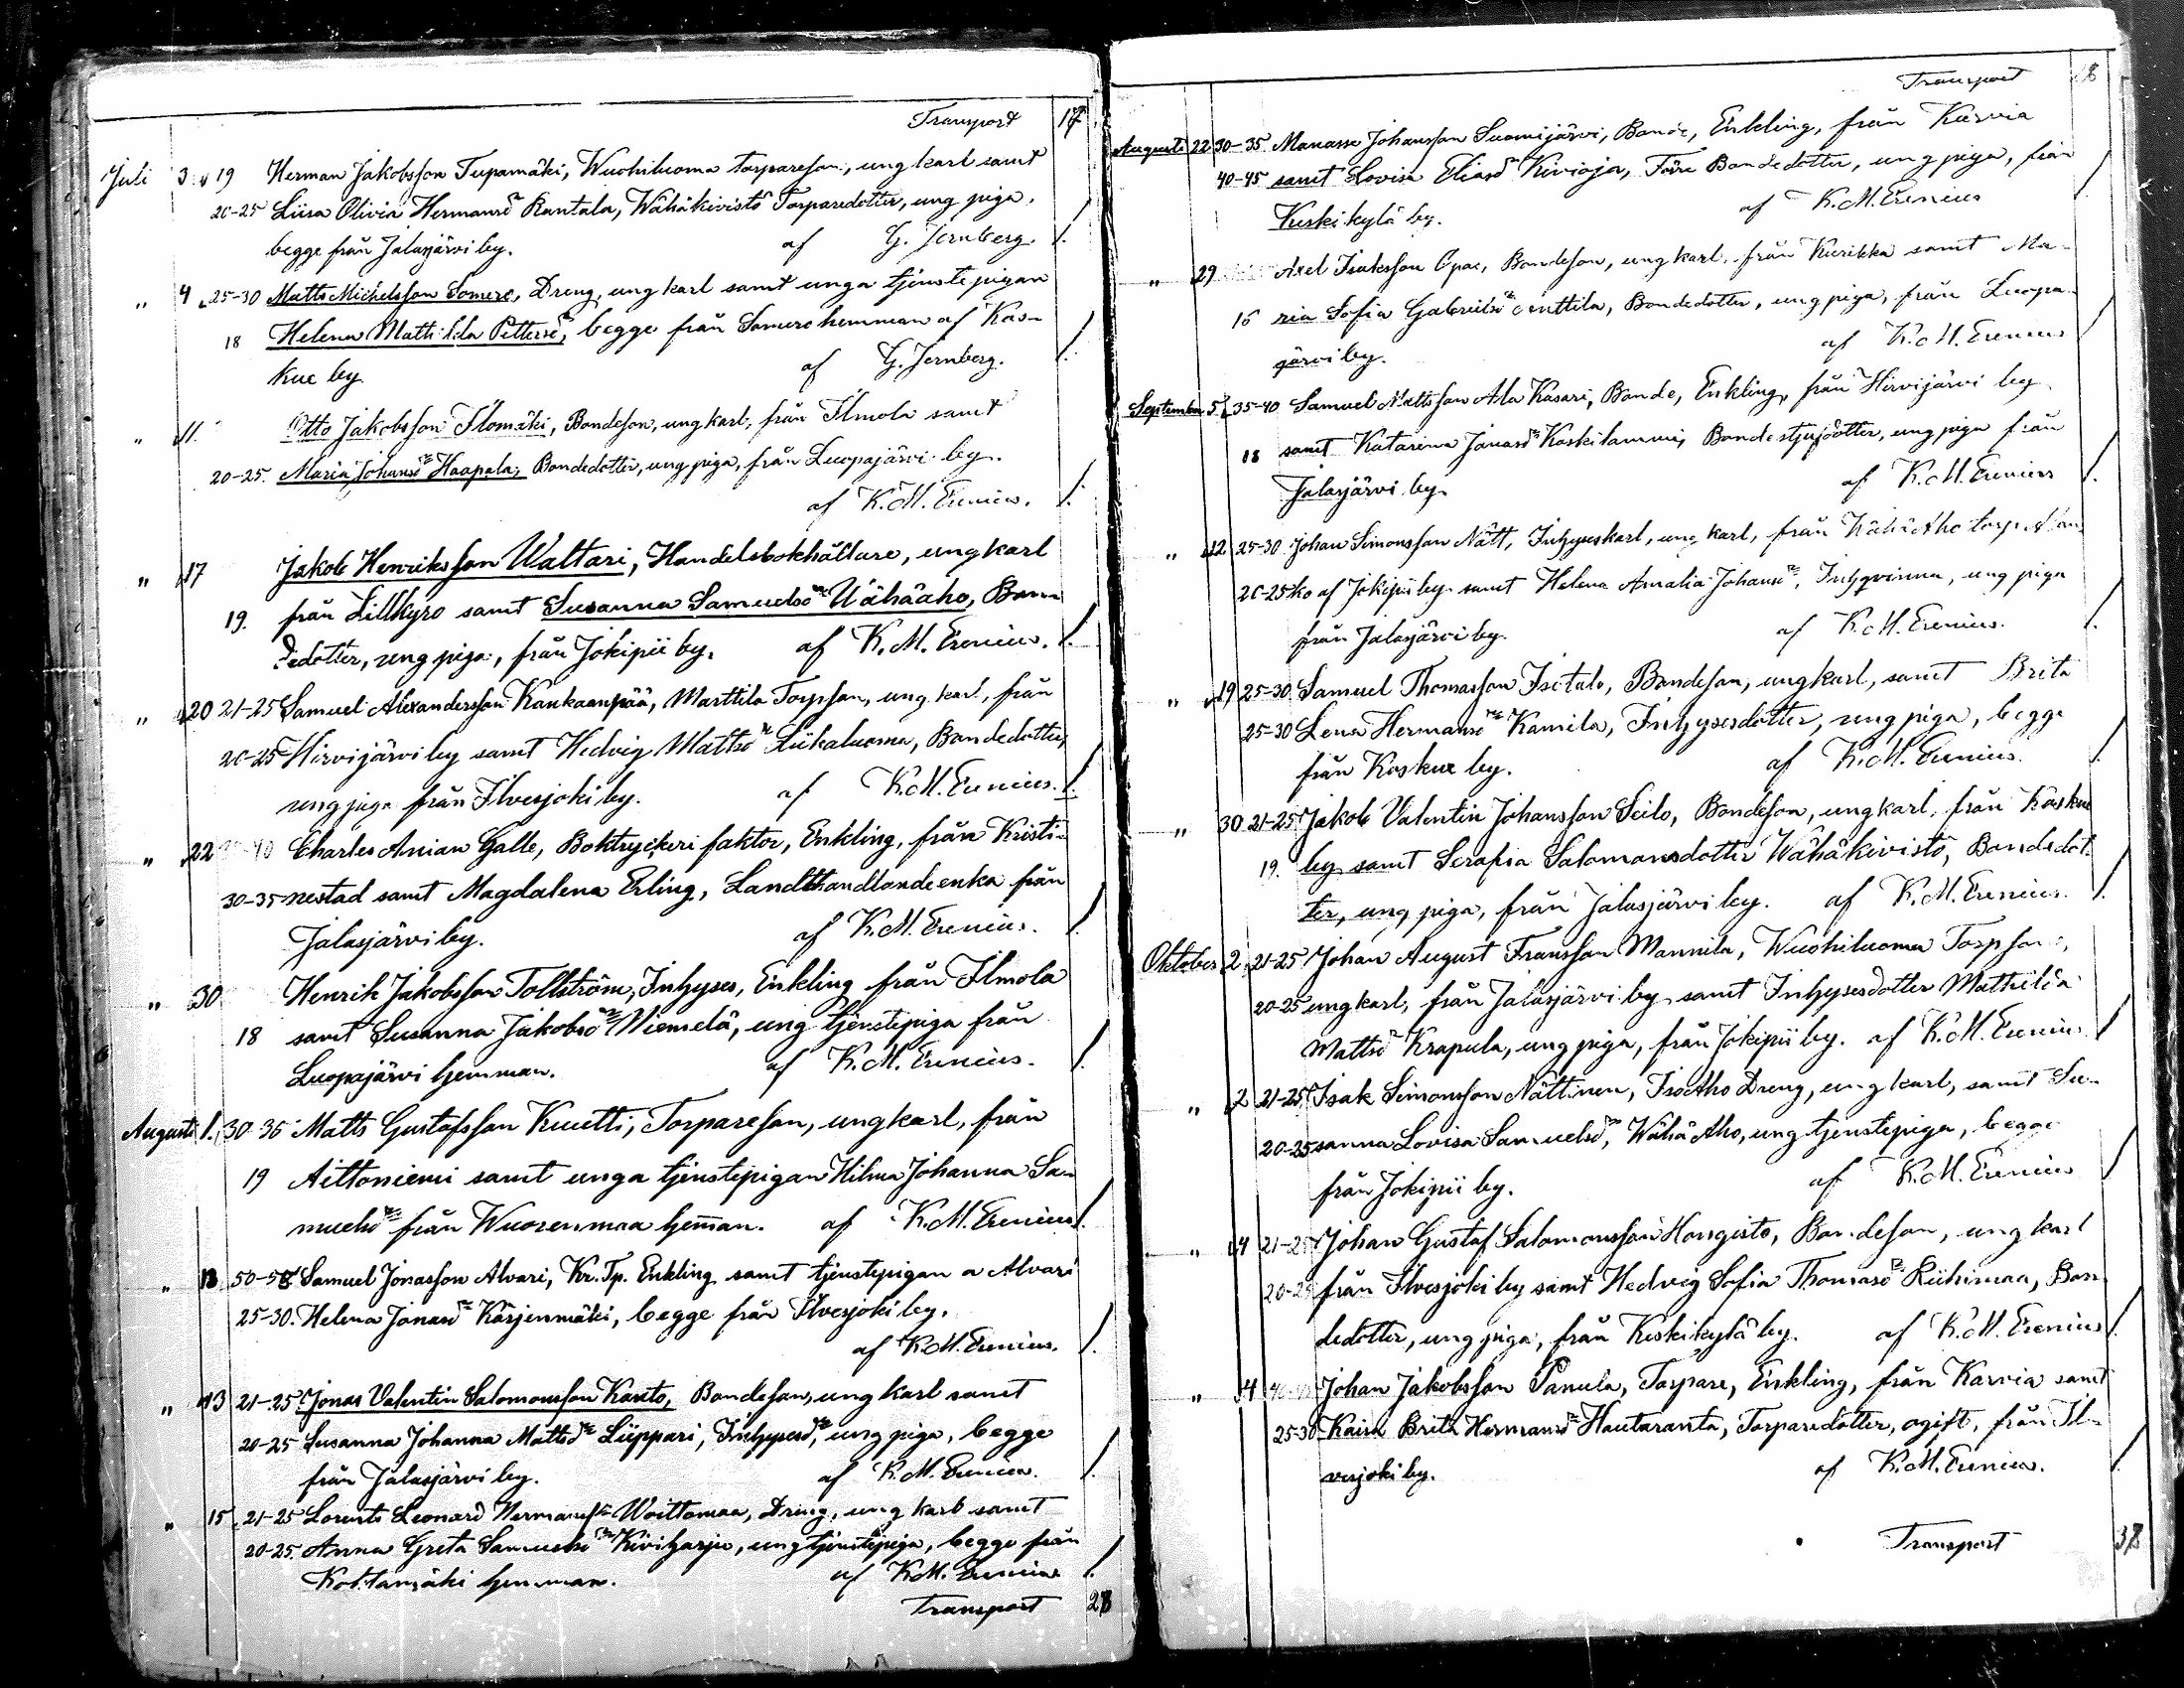 Transport 17
Juli 3 19 Herman Jakobsson Tupamäki, Wuohiluoma torpareson, ung karl samt
20-25 Liisa Olivia Hermansd Rantala, Wähäkivistö Torparedotter, ung piga,
begge från Jalasjärvi by. af G. Jernberg. /.
" 4 25-30 Matts Michelsson Somero, Dreng, ung karl samt unga tjenstepigan
18 Helena Mathilda Pettersd, begge från Somero hemman af Kos-
kue by af G. Jernberg. /.
" 11. Otto Jakobsson Ilomäki, Bondeson, ung karl, från Ilmola samt
20-25. Maria Johansd Haapala, Bondedotter, ung piga, från Luopajärvi by.
af K. M. Erenius. /.
" 17 Jakob Henriksson Waltari, Handelsbokhållare, ung karl
19. från Lillkyro samt Susanna Samuelsd Wähäaho, Bon-
dedotter, ung piga, från Jokipii by. af K. M. Erenius. /.
" 20 21-25 Samuel Alexandersson Kankaanpää, Marttila Torpson, ung karl, från
20-25 Hirvijärvi by samt Hedvig Mattsd Liikaluoma, Bondedotter,
ung piga från Ilvesjoki by. af K. M. Erenius. /.
" 22 40 Charles Anian Galle, Boktryckeri faktor, Enkling, från Kristi-
30-35 nestad samt Magdalena Erling, Landthandlande enka från
Jalasjärvi by. af K. M. Erenius. /.
" 30 Henrik Jakobsson Tollström, Inhyses, Enkling från Ilmola
18 samt Susanna Jakobsd Niemelä, ung tjenstepiga från
Luopajärvi hemman. af K. M. Erenius. /.
Augusti 1. 30-35 Matts Gustafsson Knuutti, Torpareson, ung karl, från
19 Aittoniemi samt unga tjenstepigan Hilma Johanna Sa-
muelsd från Wuorenmaa hemman. af K. M. Erenius /.
" 13 50-58 Samuel Jonasson Alvari, Kr. Tp. Enkling samt tjenstepigan a Alvari
25-30. Helena Jonasd Kärjenmäki, begge från Ilvesjoki by.
af K. M. Erenius. /.
" 13 21-25 Jonas Valentin Salomonsson Kauto, Bondeson, ung karl samt
20-25 Susanna Johanna Mattsd Liippari, Inhysesd, ung piga, begge
från Jalasjärvi by. af K. M. Erenius. /.
" 15 21-25 Lorents Leonard Hermansson Woittomaa, Dreng, ung karl samt
20-25. Anna Greta Samuelsd Kiviharju, ung tjenstepiga, begge från
hemman. af K. M. Erenius /.
Transport 28
Transport 28
Augusti 22 30-35 Manasse Johansson Suomijärvi, Bonde, Enkling, från Karvia
40-45 samt Lovisa Eliasd Kivioja, Före Bondedotter, ung piga, från
Keskikylä by. af K. M. Erenius /
" 29 Axel Isaksson Opas, Bondeson, ung karl, från Kurikka samt Ma-
16 ria Sofia Gabrielsd Penttila, Bondedotter, ung piga, från Luopa-
järvi by. af K. M. Erenius /
September 5 35-40 Samuel Mattsson Ala Kasari, Bonde, Enkling, från Hirvijärvi by
18 samt Katarina Jonasd Koskilammi, Bondestjufdotter, ung piga från
Jalasjärvi by. af K. M. Erenius /.
" 12 25-30 Johan Simonsson Nätt, Inhyseskarl, ung karl, från Wähä Aho torp
20-25 ko af Jokipii by samt Helena Amalia Johansd, Inhqvinna, ung piga
från Jalasjärvi by. af K. M. Erenius. /.
" 19 25-30 Samuel Thomasson Isotalo, Bondeson, ung karl, samt Brita
25-30 Lena Hermansd Kamila, Inhysesdotter, ung piga, begge
från Koskue by. af K. M. Erenius. /
" 30 21-25 Jakob Valentin Johansson Seilo, Bondeson, ung karl, från Koskue
19. by samt Serafia Salomonsdotter Wähäkivistö, Bondedot-
ter, ung piga, från Jalasjärvi by. af K. M. Erenius. /.
Oktober 2 21-25 Johan August Fransson Mannila, Wuohiluoma Torpson,
20-25 ung karl, från Jalasjärvi by samt Inhysesdotter Mathilda
Mattsd Krapula, ung piga, från Jokipii by. af K. M. Erenius /
" 2 21-25 Isak Simonsson Nättinen, Iso Aho Dreng, ung karl, samt Su-
20-25 sanna Lovisa Samuelsd, Wähä Aho, ung tjenstepiga, begge
från Jokipii by. af K. M. Erenius /
" 4 21-25 Johan Gustaf Salomonsson Hongisto, Bondeson, ung karl
20-25 från Ilvesjoki by samt Hedvig Sofia Thomasd Riihimaa, Bon-
dedotter, ung piga, från Keskikylä by. af K. M. Erenius /.
" 4 Johan Jakobsson Panula, Torpare, Enkling, från Karvia samt
25-30 Kaisa Brita Hermansd Hautaranta, Torparedotter, ogift, från Il-
vesjoki by. af K. M. Erenius. /.
Transport 38